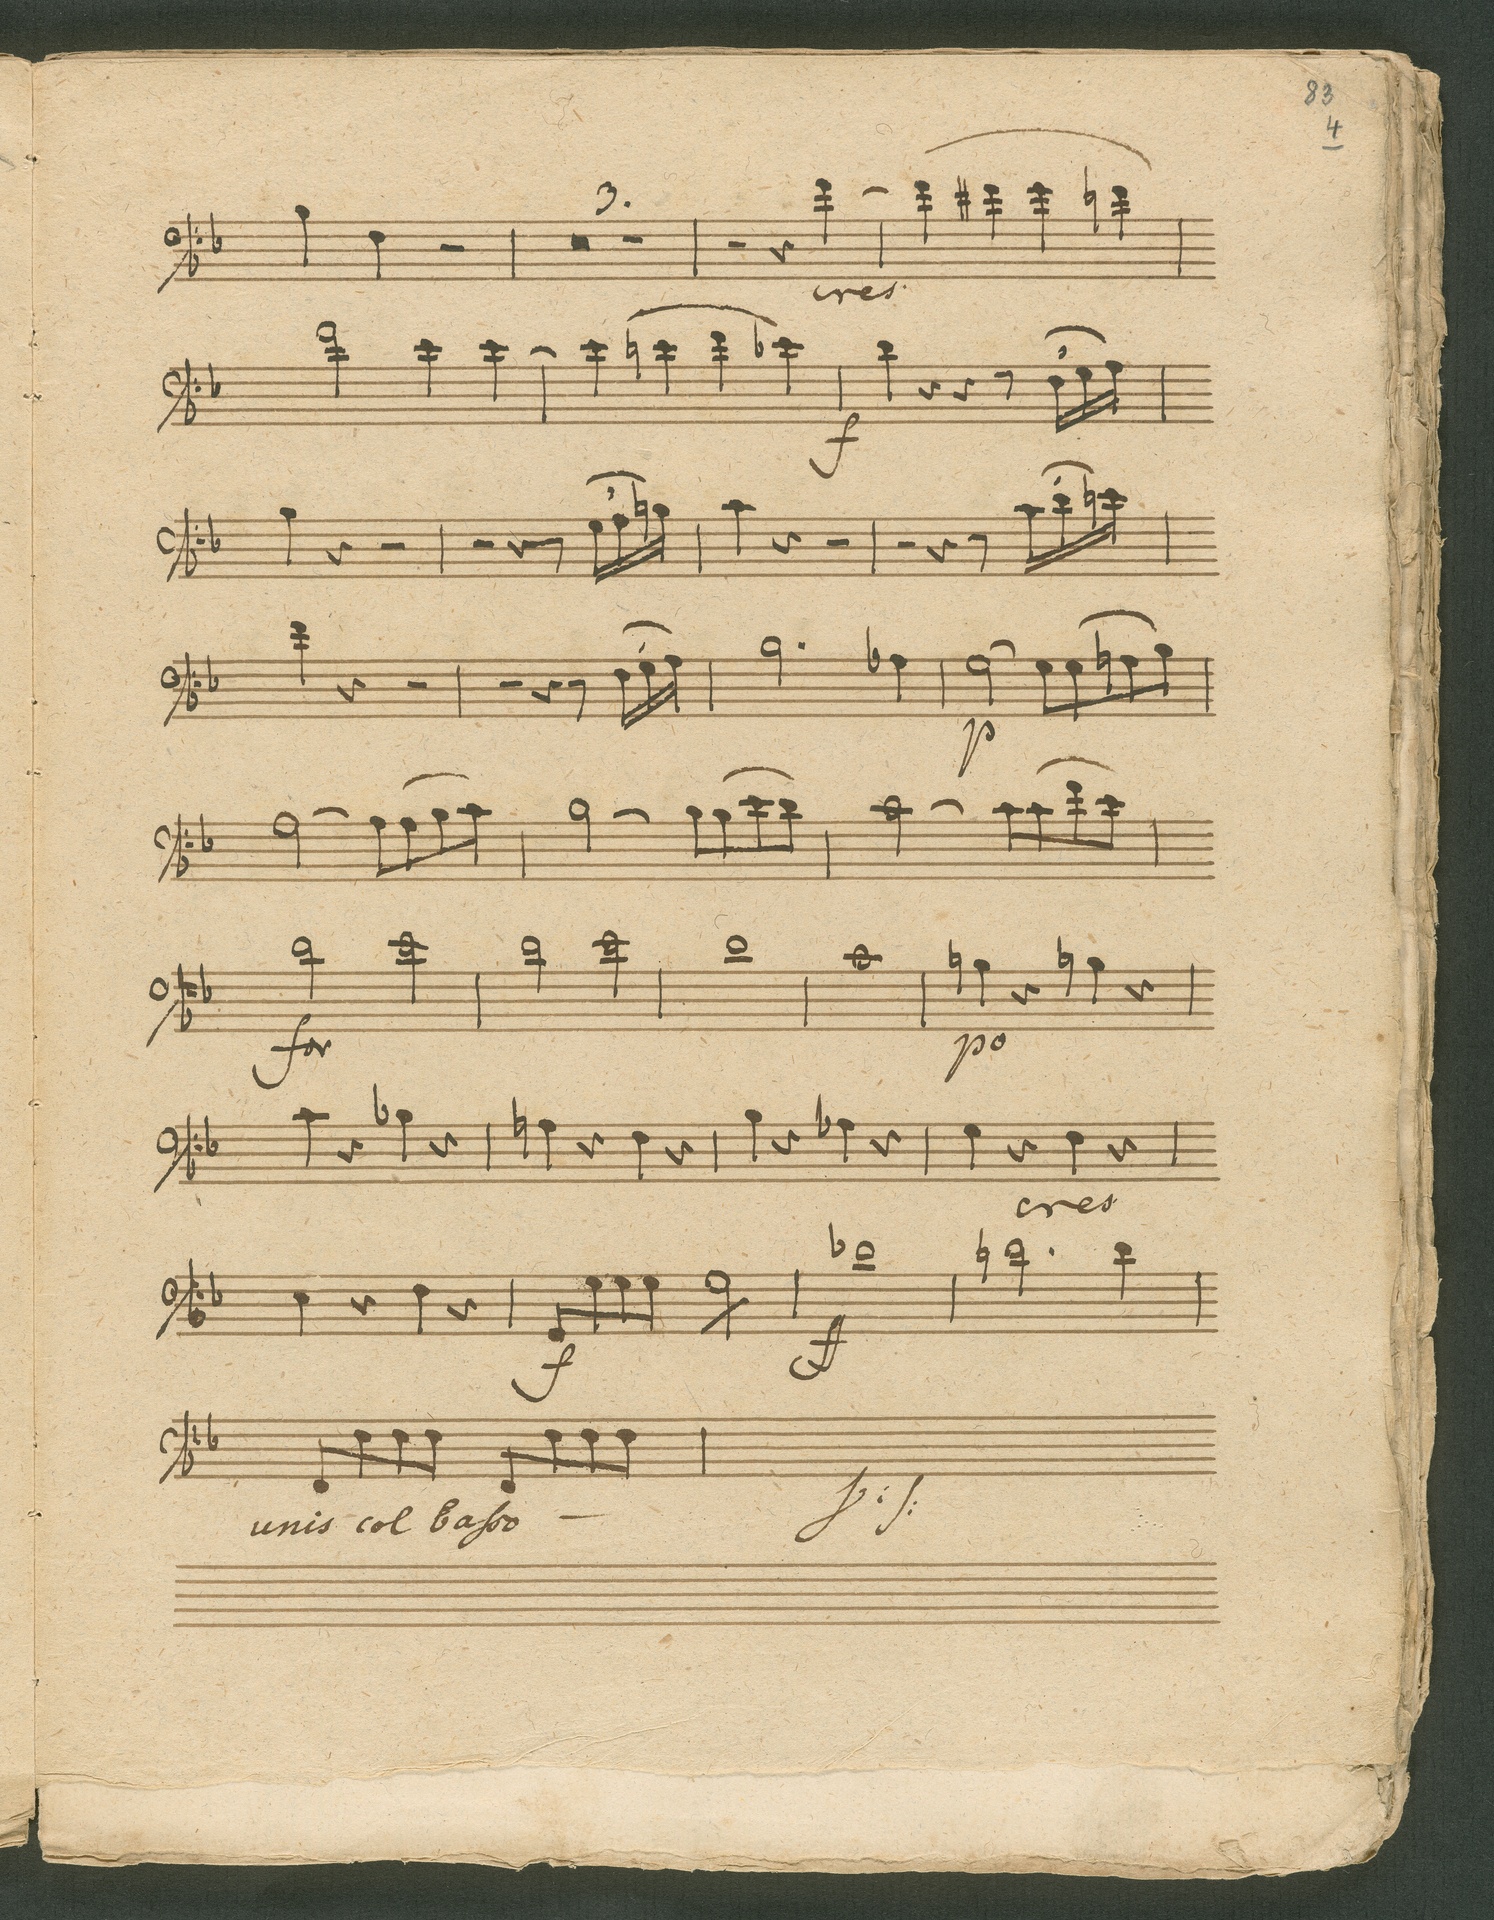 83
4
3.
cres
f
3
3
p
for
po
cres
f
ff
unis col Basso —